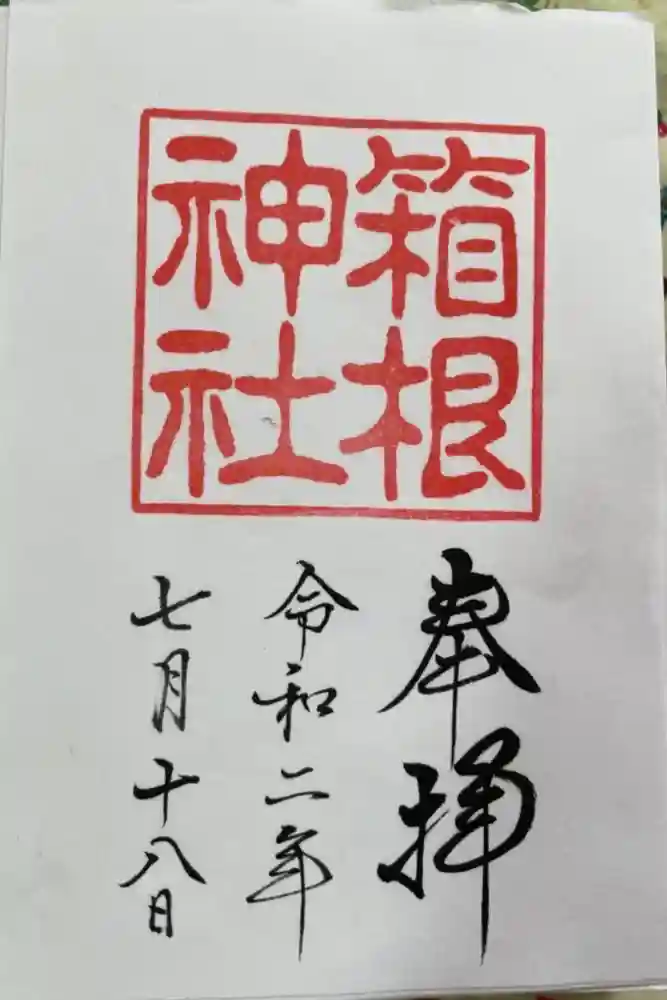 箱根
神社
奉拝
令和二年
七月十八日